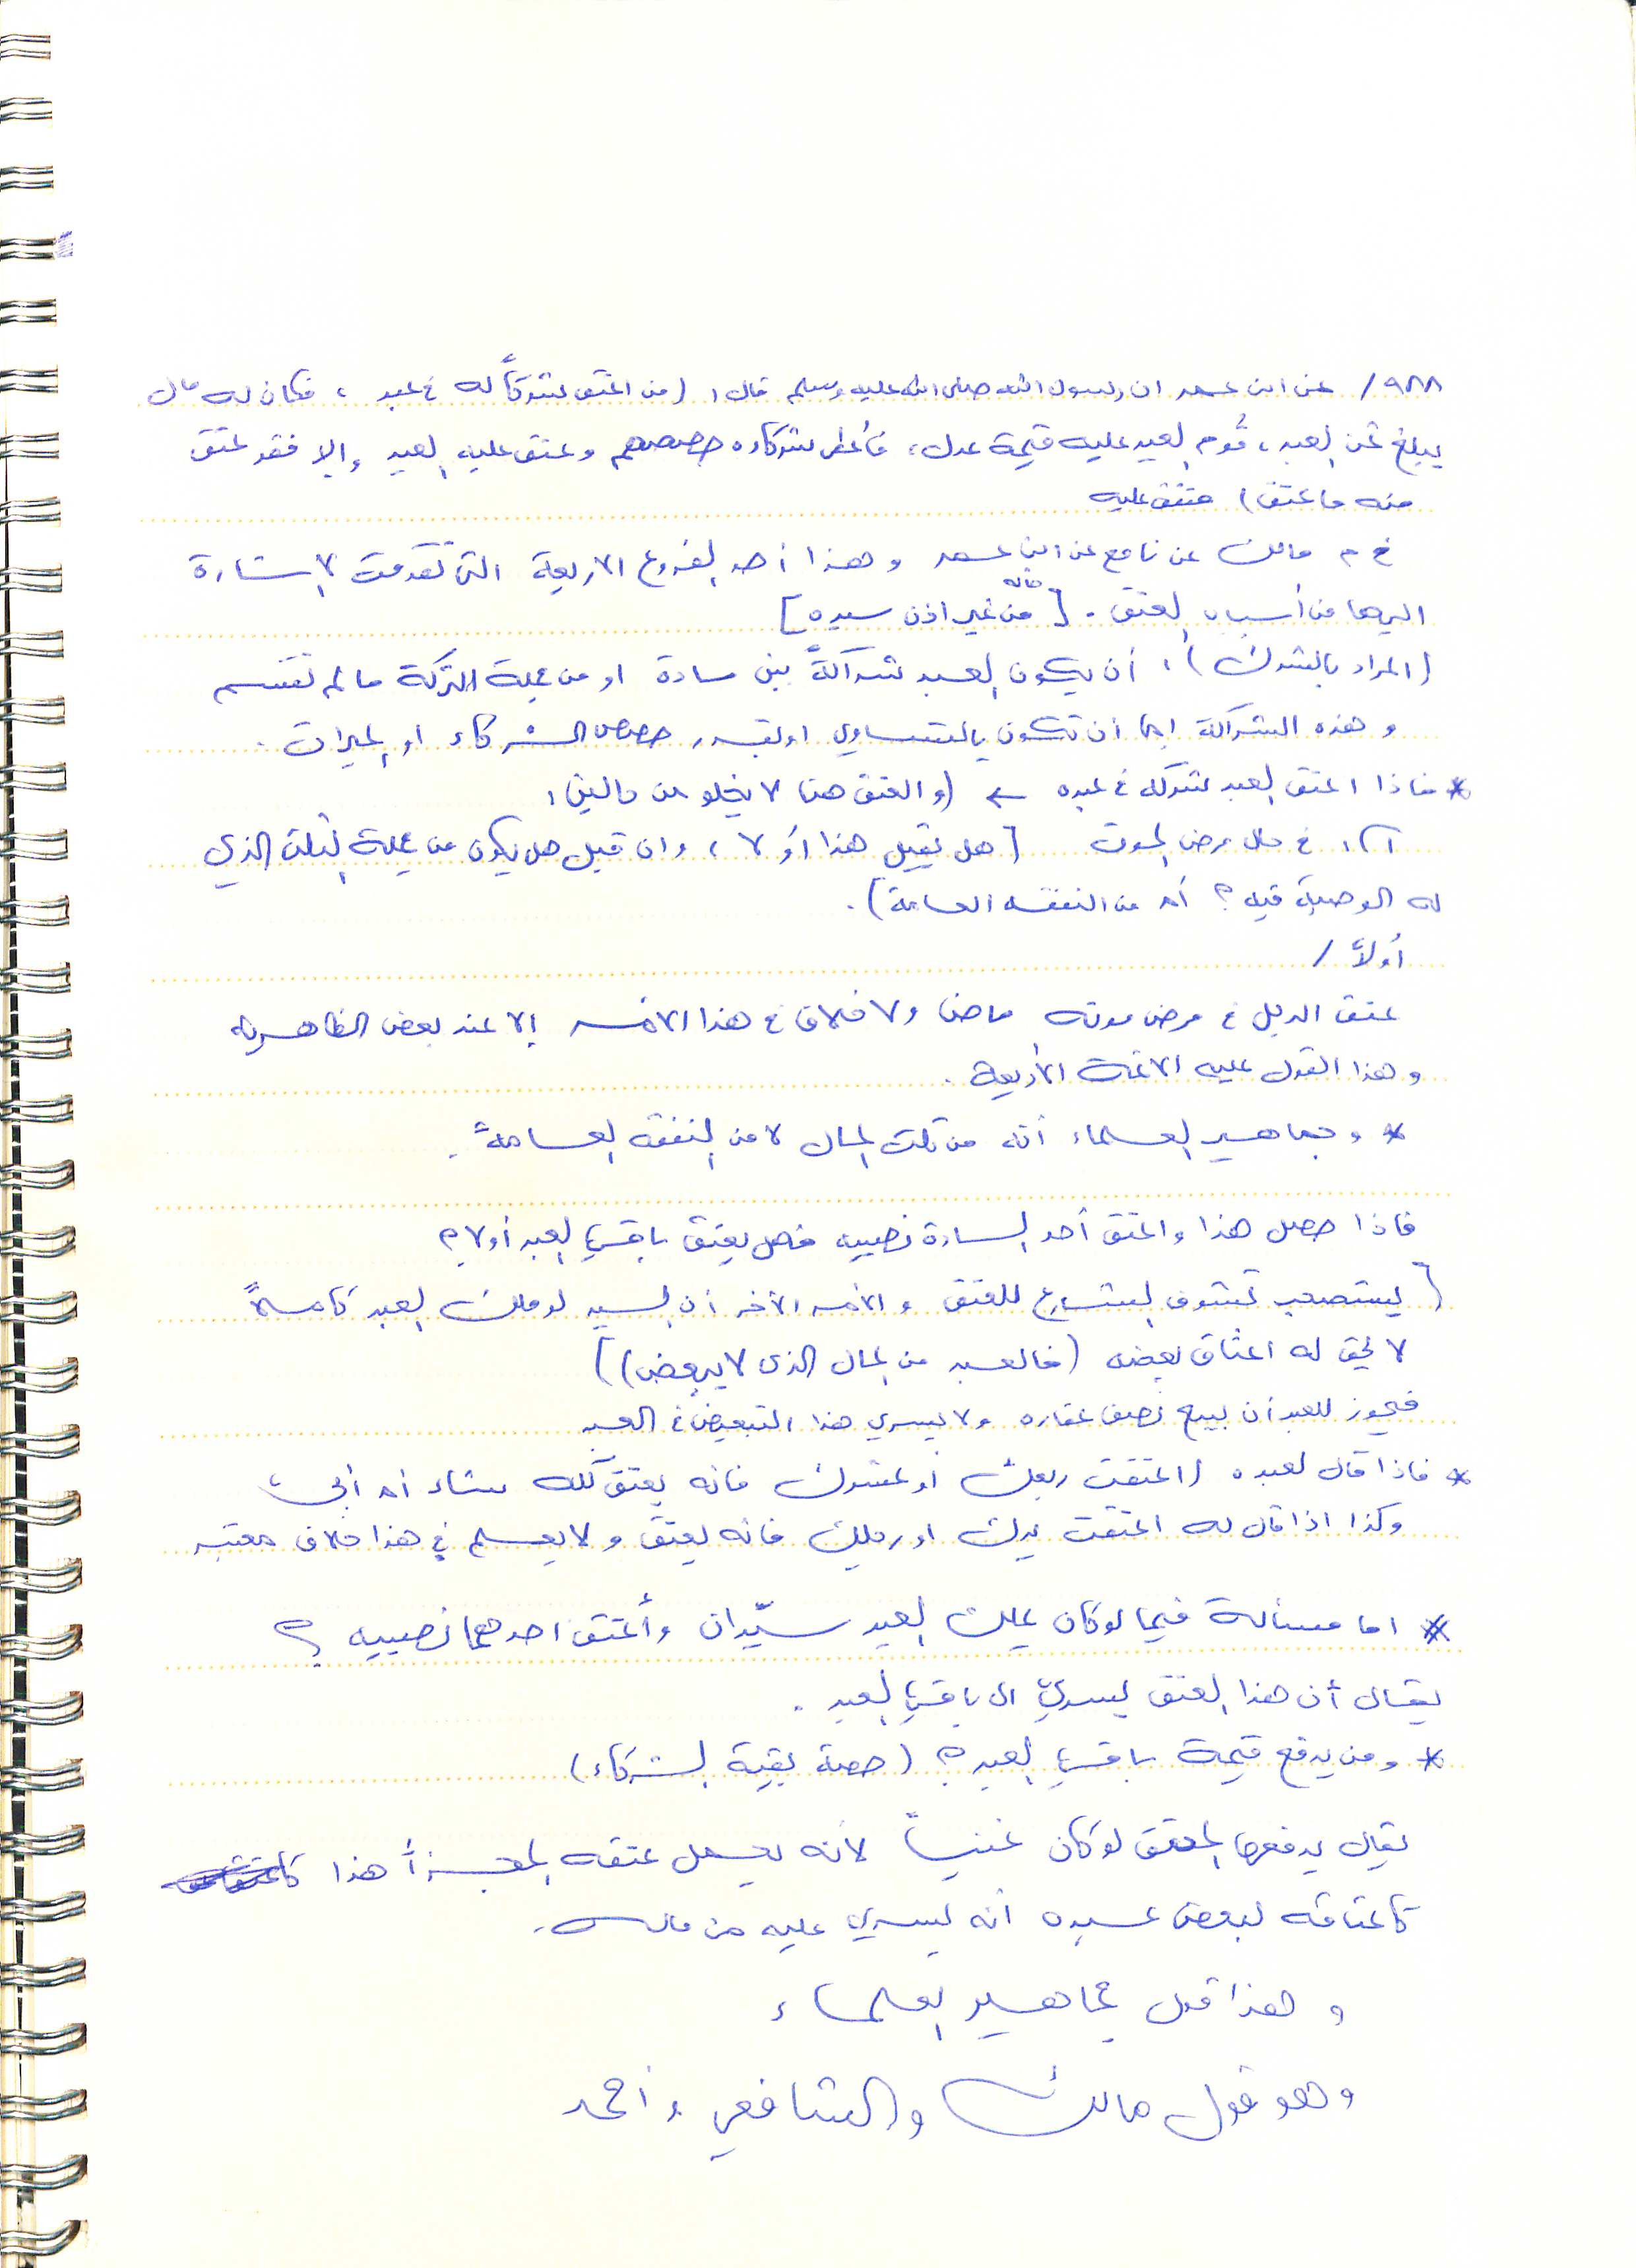 ٩٨٨/ عن ابن عمر ان رسول الله صلى الله عليه وسلم قال: (من اعتق شركاً له في عبد ، فكان له مال
يبلغ ثمن العبد ، قُوم العبد عليه قيمة عدل ، فأعطى شركاءه حصصهم وعتق عليه العبد وإلا فقد عتق
منه ما عتق) متفق عليه
خ م مالك عن نافع عن ابن عمر وهذا أحد الفروع الاربعة التي تقدمت الاشارة
اليها من أسباب العتق . [من غير اذن سيده]
(المراد بالشرك) : أن يكون العبد شراكةً بين سادة او من جملة التركة ما لم تقتسم
وهذه الشراكة إما أن تكون بالتساوي او بقدر حصص الشركاء او الميراث .
* فاذا اعتق العبد شركه في عبده ← (والعتق هنا لا يخلو من حالين :
١) : في حال مرض الموت [هل يقبل هذا أو لا ، وان قبل هل يكون من جملة الثلث الذي
له الوصية فيه ؟ أم من النفقه العامة) .
أولاً /
عتق الرجل في مرض موته ماضٍ ولا خلاف في هذا الأمر إلا عند بعض الظاهرية
وهذا القول عليه الائمة الأربعة .
* وجماهير العلماء أنه من ثلث المال لا من النفقه العامة .
فاذا حصل هذا واعتق أحد السادة نصيبه فهل يعتق باقي العبد أو لا ؟
[يستصحب تشوف الشارع للعتق والأمر الآخر أن السيد لو ملك العبد كاملاً
لا يحق له اعتاق بعضه (فالعبد من المال الذي لا يبعض)]
فيجوز للعبد أن يبيع نصف عقاره ولا يسري هذا التبعيض في العبد
* فاذا قال لعبده (اعتقت ربعك أو عشرك فانه يعتق كله شاء أم أبى ،
وكذا اذا قال له اعتقت يدك او رجلك فانه يعتق ولا يعلم في هذا خلاف معتبر
* اما مسألة فيما لو كان يملك العبد سيّدان وأعتق احدهما نصيبه ؟
يقال أن هذا العتق يسري الى باقي العبد .
* ومن يدفع قيمة باقي العبد ؟ (حصة بقية الشركاء)
يقال يدفعها المعتق لو كان غنياً لأنه يجعل عتقه المجزأ هذا
كاعتاقه لبعض عبده انه يسري عليه من ماله .
وهذا قول جماهير العلماء
وهو قول مالك والشافعي وأحمد